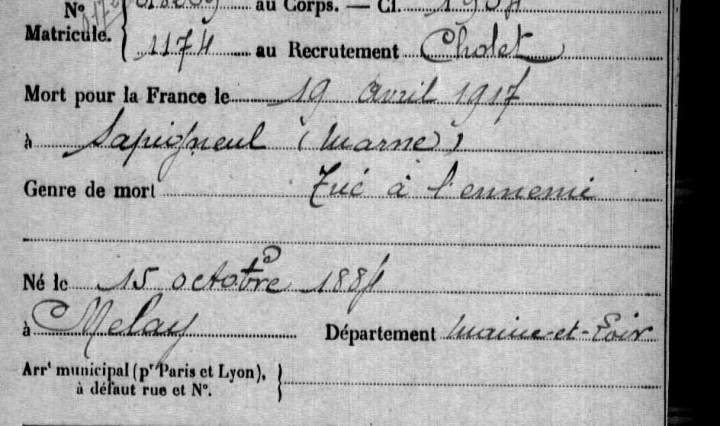 N° au Corps. — Cl. 1904
Matricule. 1174 au Recrutement Cholet
Mort pour la France le 19 avril 1917
à Sapigneul (Marne)
Genre de mort Tué à l'ennemi
Né le 15 octobre 1884
à Melay Département Maine-et-Loir
Arrt municipal (pr Paris et Lyon),
à défaut rue et N°.